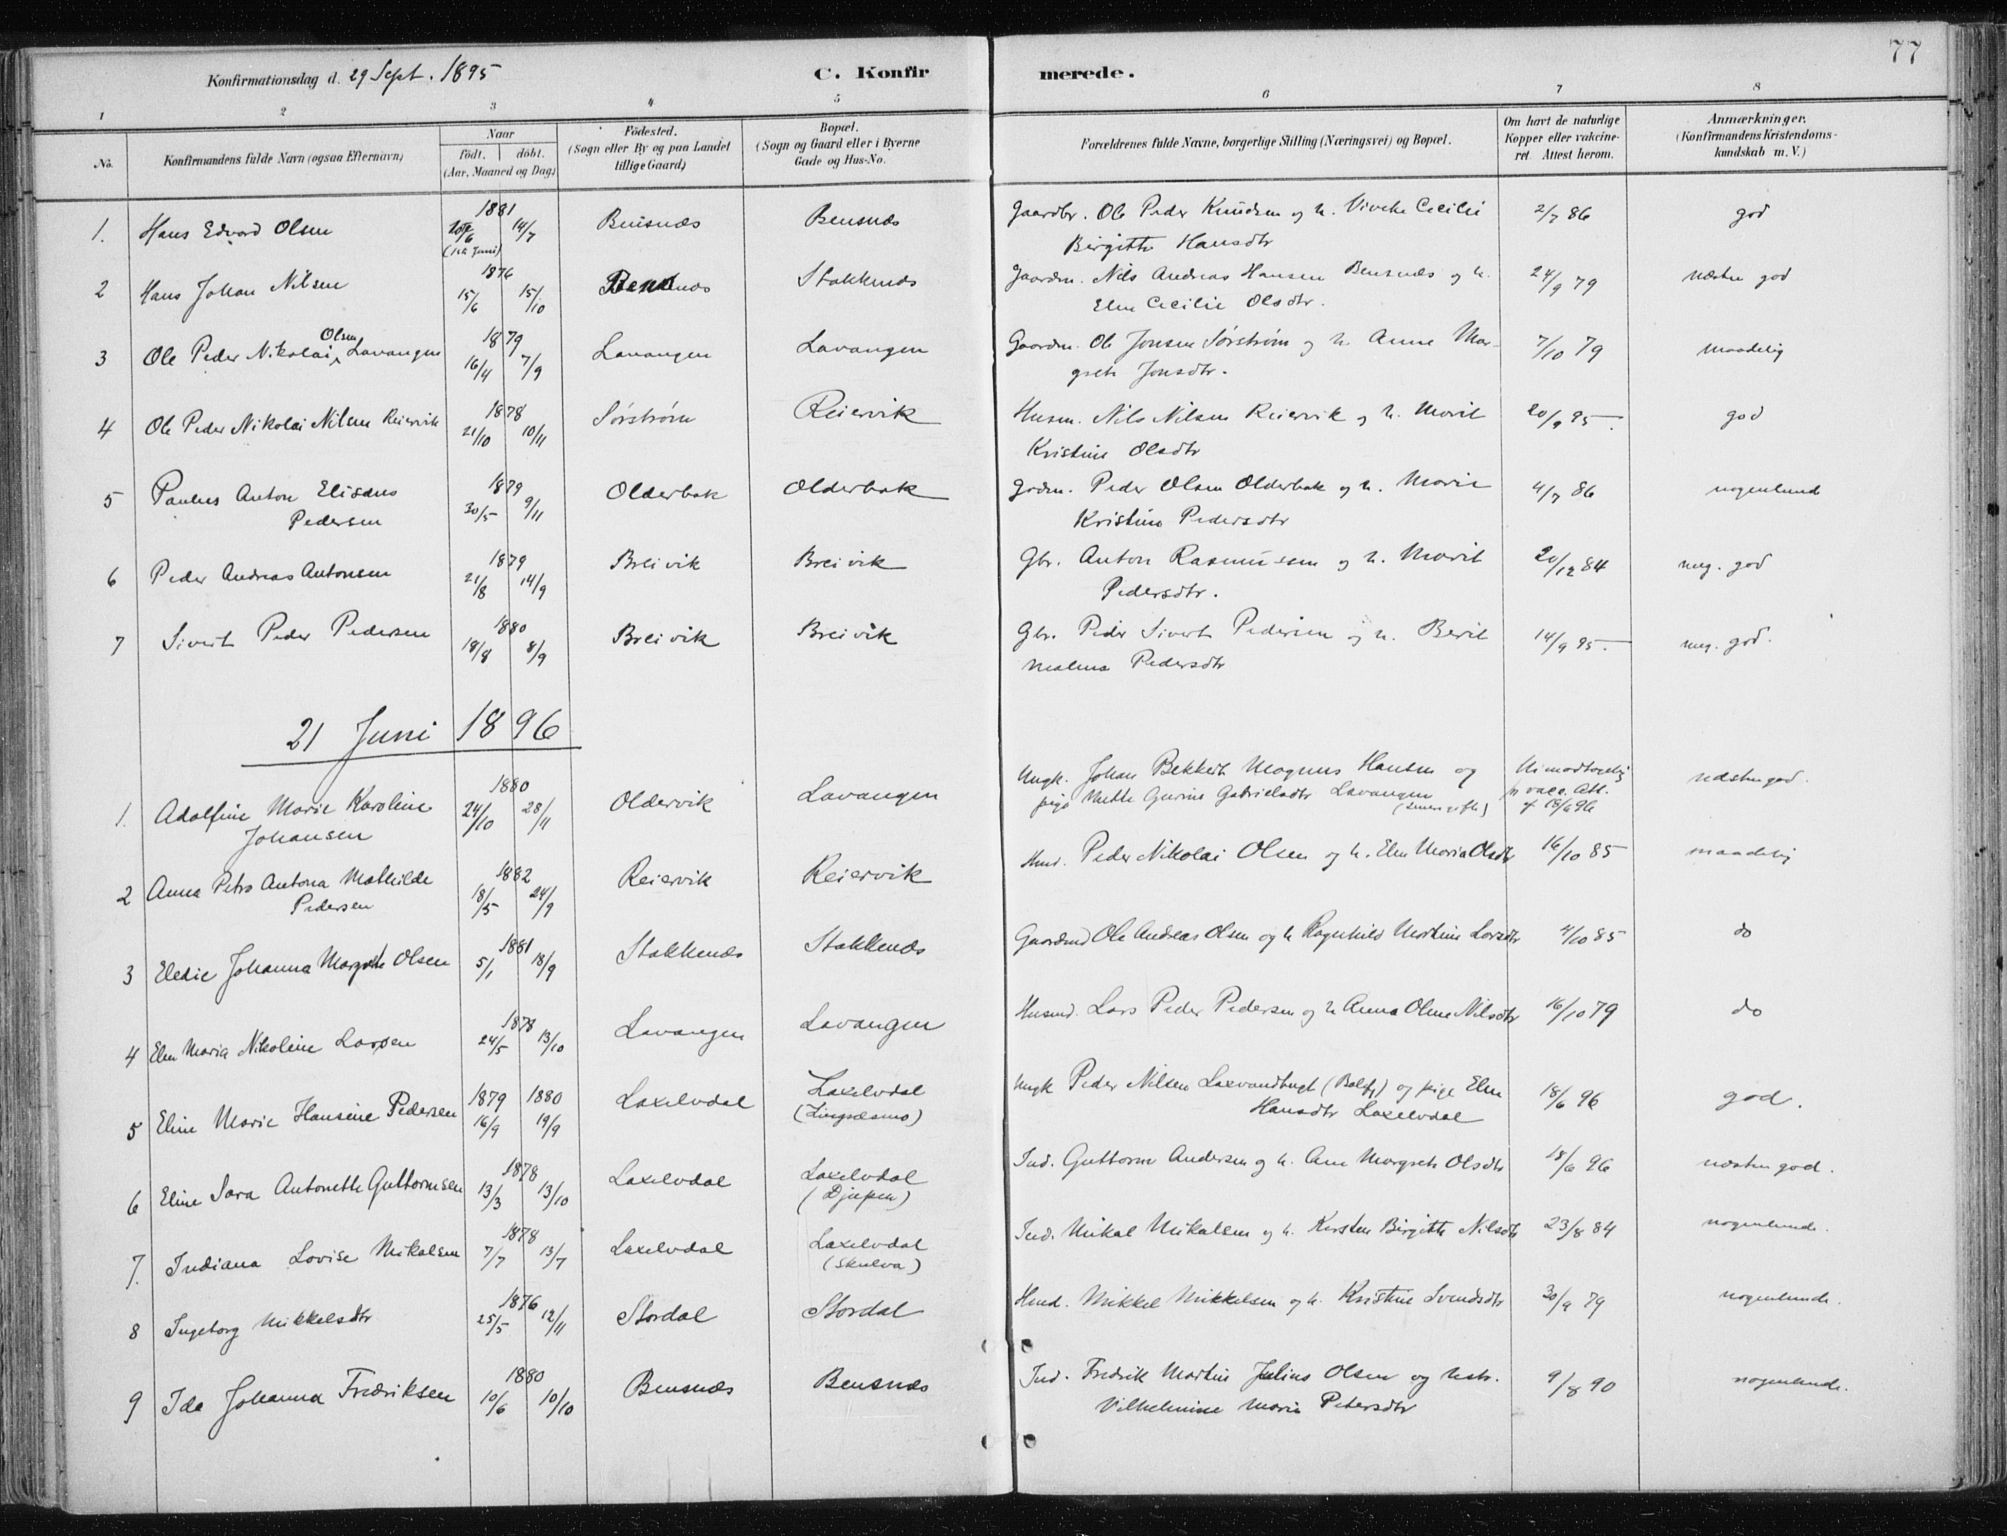 77
Konfirmationsdag d. 29 Sept. 1895 C. Konfirmerede.
1 2 3 4 5 6 7 8
No. Konfirmandens fulde Navn (ogsaa Efternavn) Naar født. døbt. (Aar, Maaned og Dag) Fødested. (Sogn eller By og paa Landet tillige Gaard) Bopæl. (Sogn og Gaard eller i Byerne Gade og Hus-No. Forældrenes fulde Navne, borgerlige Stilling (Næringsvei) og Bopæl. Om havt de naturlige Kopper eller vakcineret Attest herom. Anmærkninger. (Konfirmandens Kristendomskundskab m. V.)
1. Hans Edvard Olsen 1881 /6 (Juni) 14/7 Bensnæs Bensnæs Gaardbr. Ole Peder Knudsen og h. Viveke Cecilie 2/7 86 god
Birgitte Hansdtr
2 Hans Johan Nilsen 1876 15/6 15/10 Bensnæs Stakknæs Gaardm. Nils Andreas Hansen Bensnæs og h. 24/9 79 næsten god
Elen Cecilie Olsdtr.
3 Ole Peder Nikolai Olsen Lavangen 1879 16/4 7/9 Lavangen Lavangen Gaardm. Ole Jonsen Sørstrøm og h. Anne Mar- 7/10 79 maadelig
grete Jonsdtr.
4 Ole Peder Nikolai Nilsen Reiervik 1878 21/10 10/11 Sørstrøm Reiervik Husm. Nils Nilsen Reiervik og h. Marit 20/9 95. god
Kristine Olsdtr
5 Paulus Anton Elisæus 1879 30/5 9/11 Olderbak Olderbak Gdm. Peder Olsen Olderbak og h. Marie 4/7 86 nogenlunde
Pedersen Kristine Pedersdtr
6 Peder Andreas Antonsen 1879 21/8 14/9 Breivik Breivik Gbr. Anton Rasmussen og h. Marit 20/12 84 meg. god
Pedersdtr.
7 Sivert Peder Pedersen 1880 19/8 8/9 Breivik Breivik Gbr. Peder Sivert Pedersen og h. Berit 14/9 95. meg. god.
Malena Pedersdtr
21 Juni 1896
1. Adolfine Marie Karoline 1880 24/10 28/11 Oldervik Lavangen Ungk. Johan Bekkert Magnus Hansen og næsten god.
Johansen pige Mette Gurine Gabrielsdtr Lavangen (senere gifte) Umodtagelig p vacc. Att. f 18/6 96
2 Anna Petra Antona Mathilde 1882 18/5 24/9 Reiervik Reiervik Hmd. Peder Nikolai Olsen og h. Elen Maria Olsdtr 16/10 85 maadelig
Pedersen
3 Eledie Johanna Margrete Olsen 1881 5/1 18/9 Stakkenæs Stakkenæs Gaardmd Ole Andreas Olsen og h Ragnhild Martine Larsdtr 4/10 85 do
4 Elen Maria Nikoline Larsen 1878 24/5 13/10 Lavangen Lavangen Husmd. Lars Peder Pedersen og h Anna Oline Nilsdtr 16/10 79 do
5 Eline Marie Hansine Pedersen 1879 16/9 1880 19/9 Laxelvdal Laxelvdal Ungk Peder Nilsen Laxvandbugt (Balsfj) og pige Elen 18/6 96 god.
(Lingnæsmo) Hansdtr Laxelvdal
6 Eline Sara Antonette Guttormsen 1878 13/3 13/10 Laxelvdal Laxelvdal (Djupen) Ind. Guttorm Andersen og h. Ane Margrete Olsdtr 18/6 96 næsten god.
7. Indiana Lovise Mikalsen 1878 7/7 13/7 Laxelvdal Laxelvdal (Skulva) Ind. Mikal Mikalsen og h. Karsten Birgitte Nilsdtr 23/8 84 nogenlunde.
8 Ingeborg Mikkelsdtr 1876 25/5 12/11 Stordal Stordal Hmd. Mikkel Mikkelsen og h. Kristine Svendsdtr 30/9 79 nogenlunde.
9 Ida Johanna Fredriksen 1880 10/6 10/10 Bensnæs Bensnæs Ind. Fredrik Martin Julius Olsen og hstr. 9/8 90 nogenlunde.
Vilhelmine Marie Petersdtr